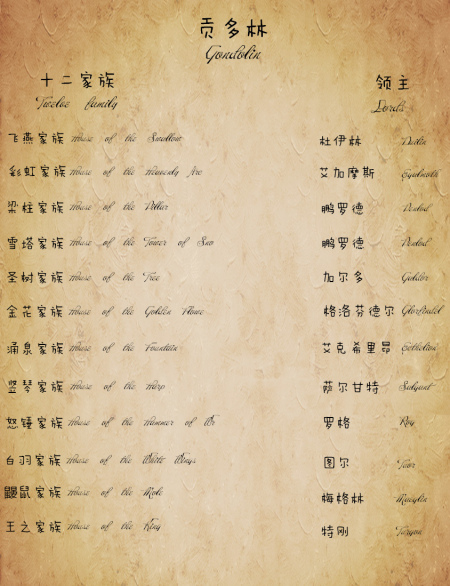 贡多林
Gondolin
十二家族 领主
Twelve family Lords
飞燕家族 House of the Swallow 杜伊林 Duilin
彩虹家族 House of the Heavenly Arc 艾加摩斯 Egalmoth
梁柱家族 House of the Pillar 鹏罗德 Penlod
雪塔家族 House of the Tower of Sno 鹏罗德 Penlod
圣树家族 House of the Tree 加尔多 Galdor
金花家族 House of the Golden Flowe 格洛芬德尔 Glorfindel
涌泉家族 House of the Fountain 艾克希里昂 Ecthelion
竖琴家族 House of the Harp 萨尔甘特 Salgant
怒锤家族 House of the Hammer of Wr 罗格 Rog
白羽家族 House of the White Wings 图尔 Tuor
鼹鼠家族 House of the Mole 梅格林 Maeglin
王之家族 House of the King 特刚 Turgon